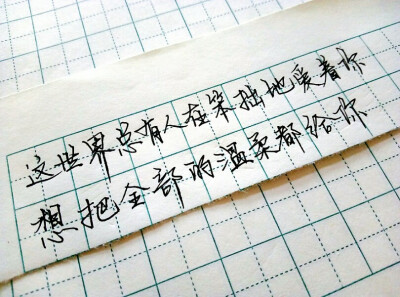 这世界总有人在笨拙地爱着你
想把全部的温柔都给你